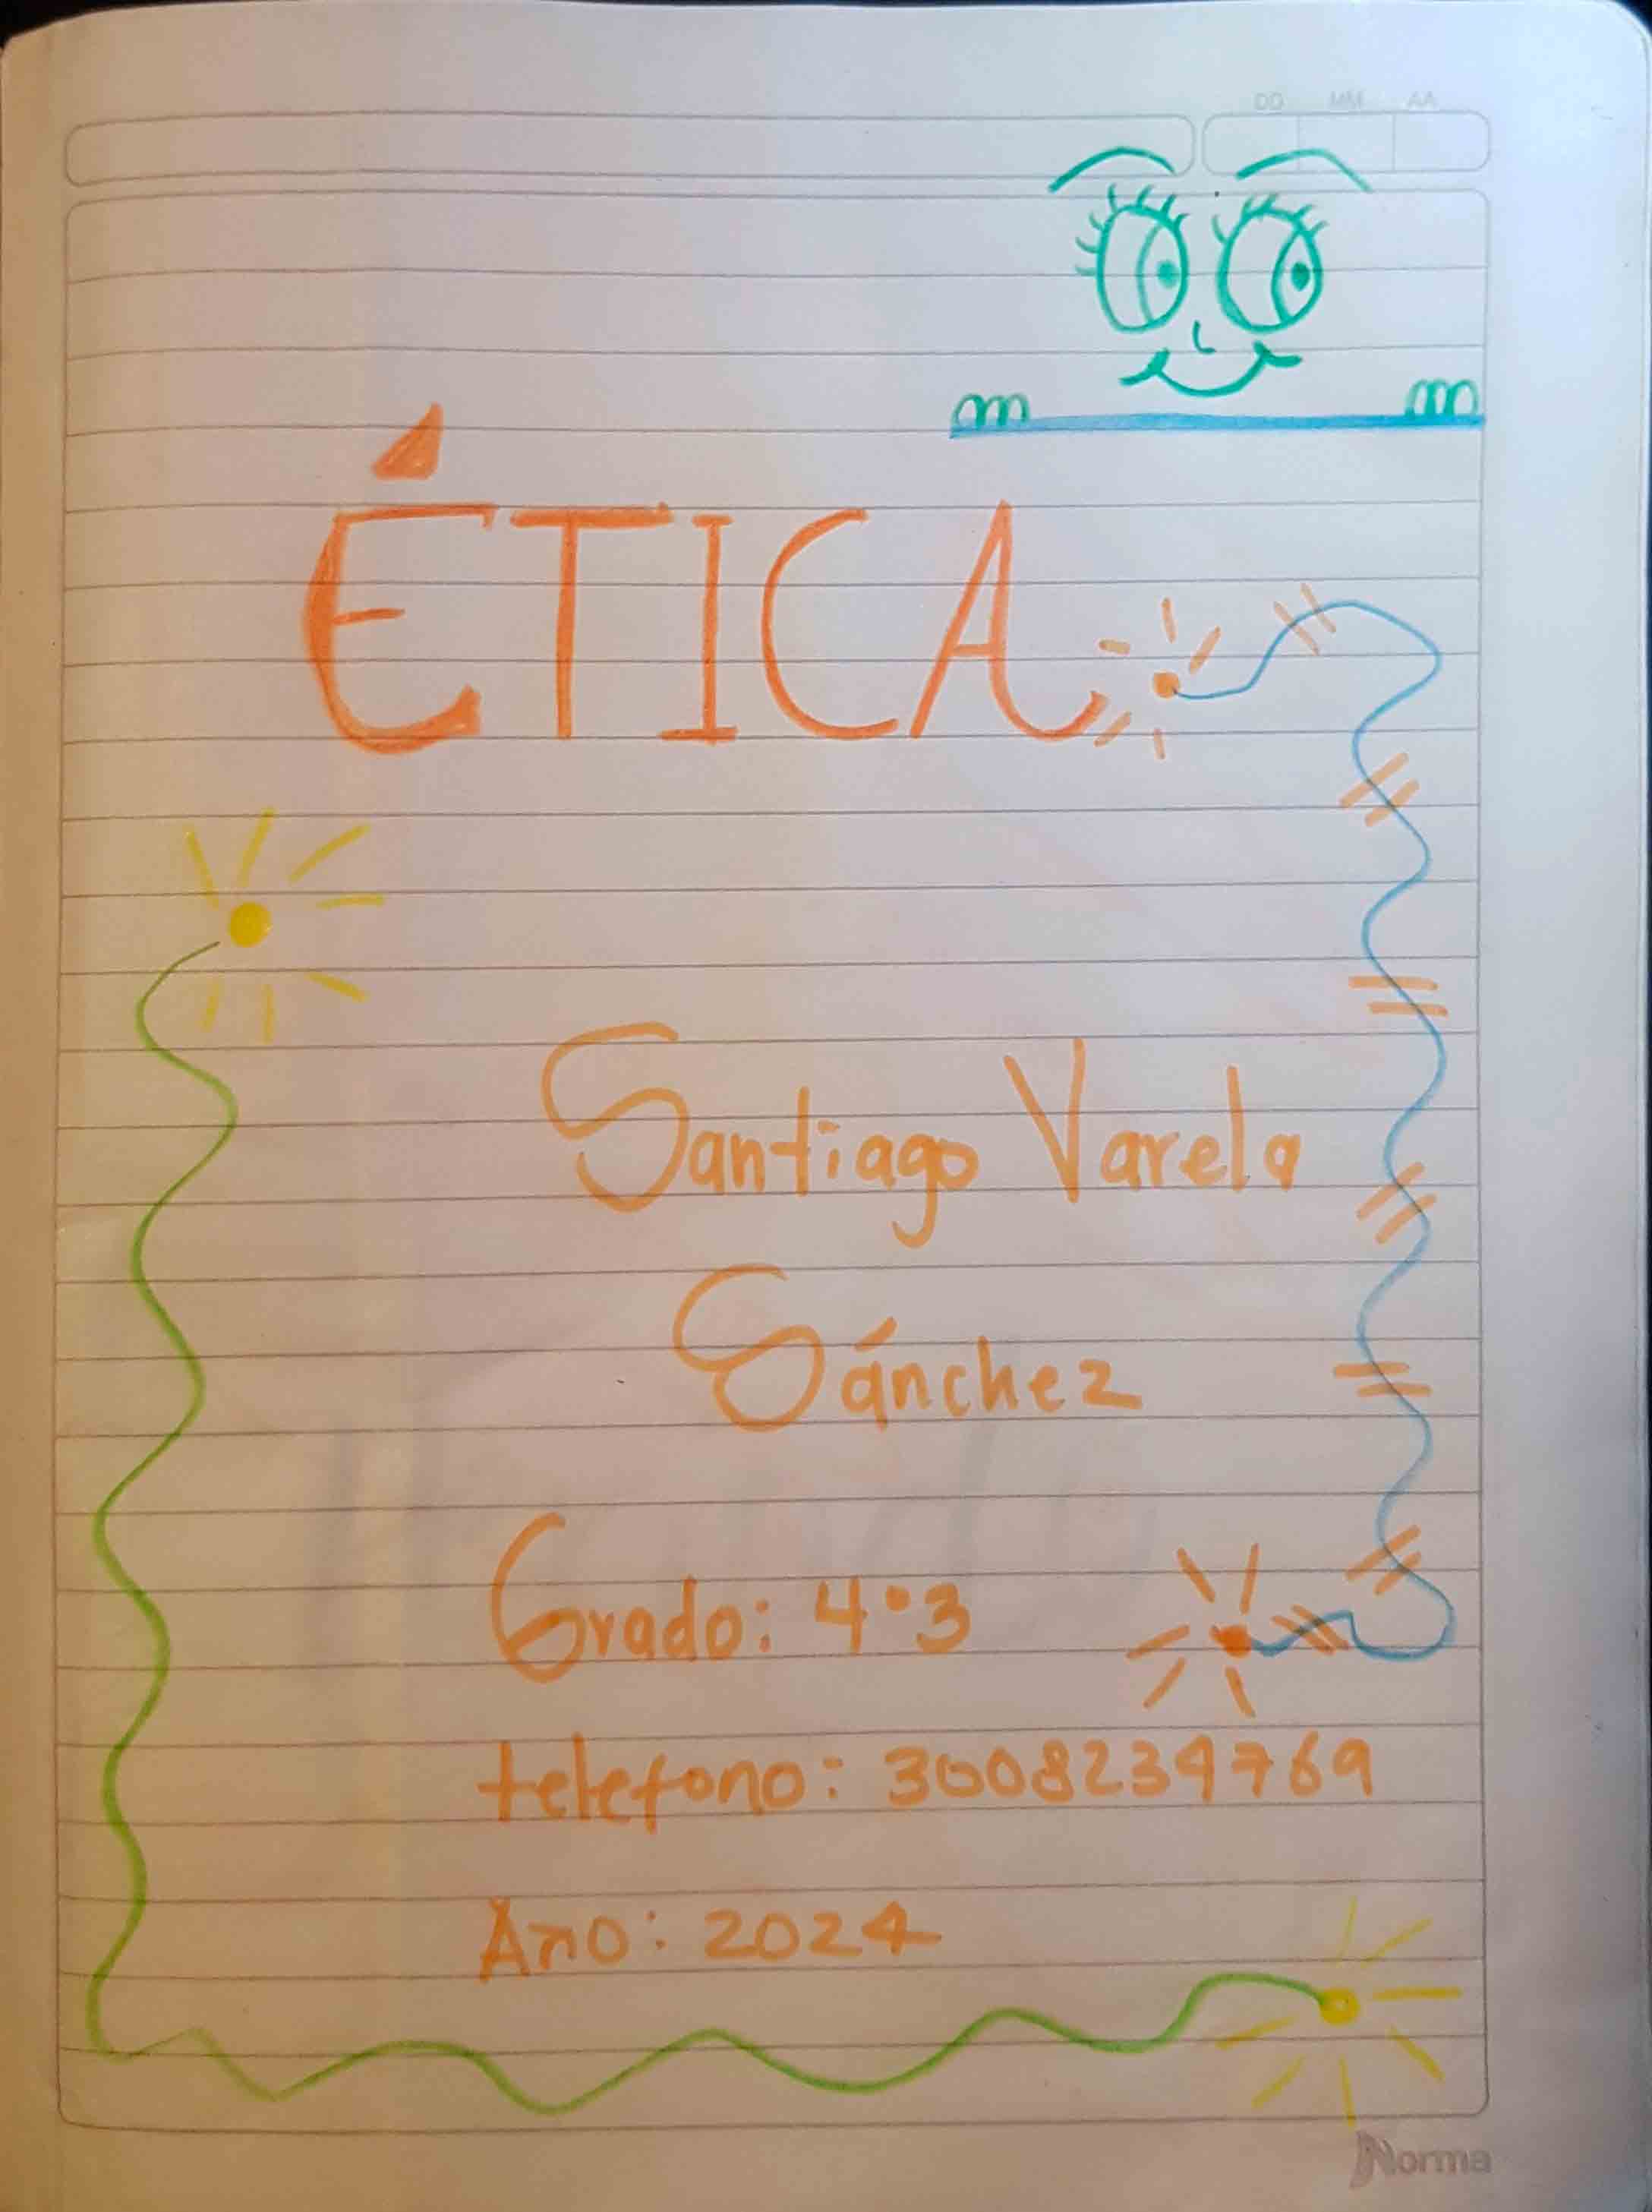 DD MM AA
ÉTICA
Santiago Varela
Sánchez
Grado: 4°3
telefono: 3008239769
Año: 2024
Norma